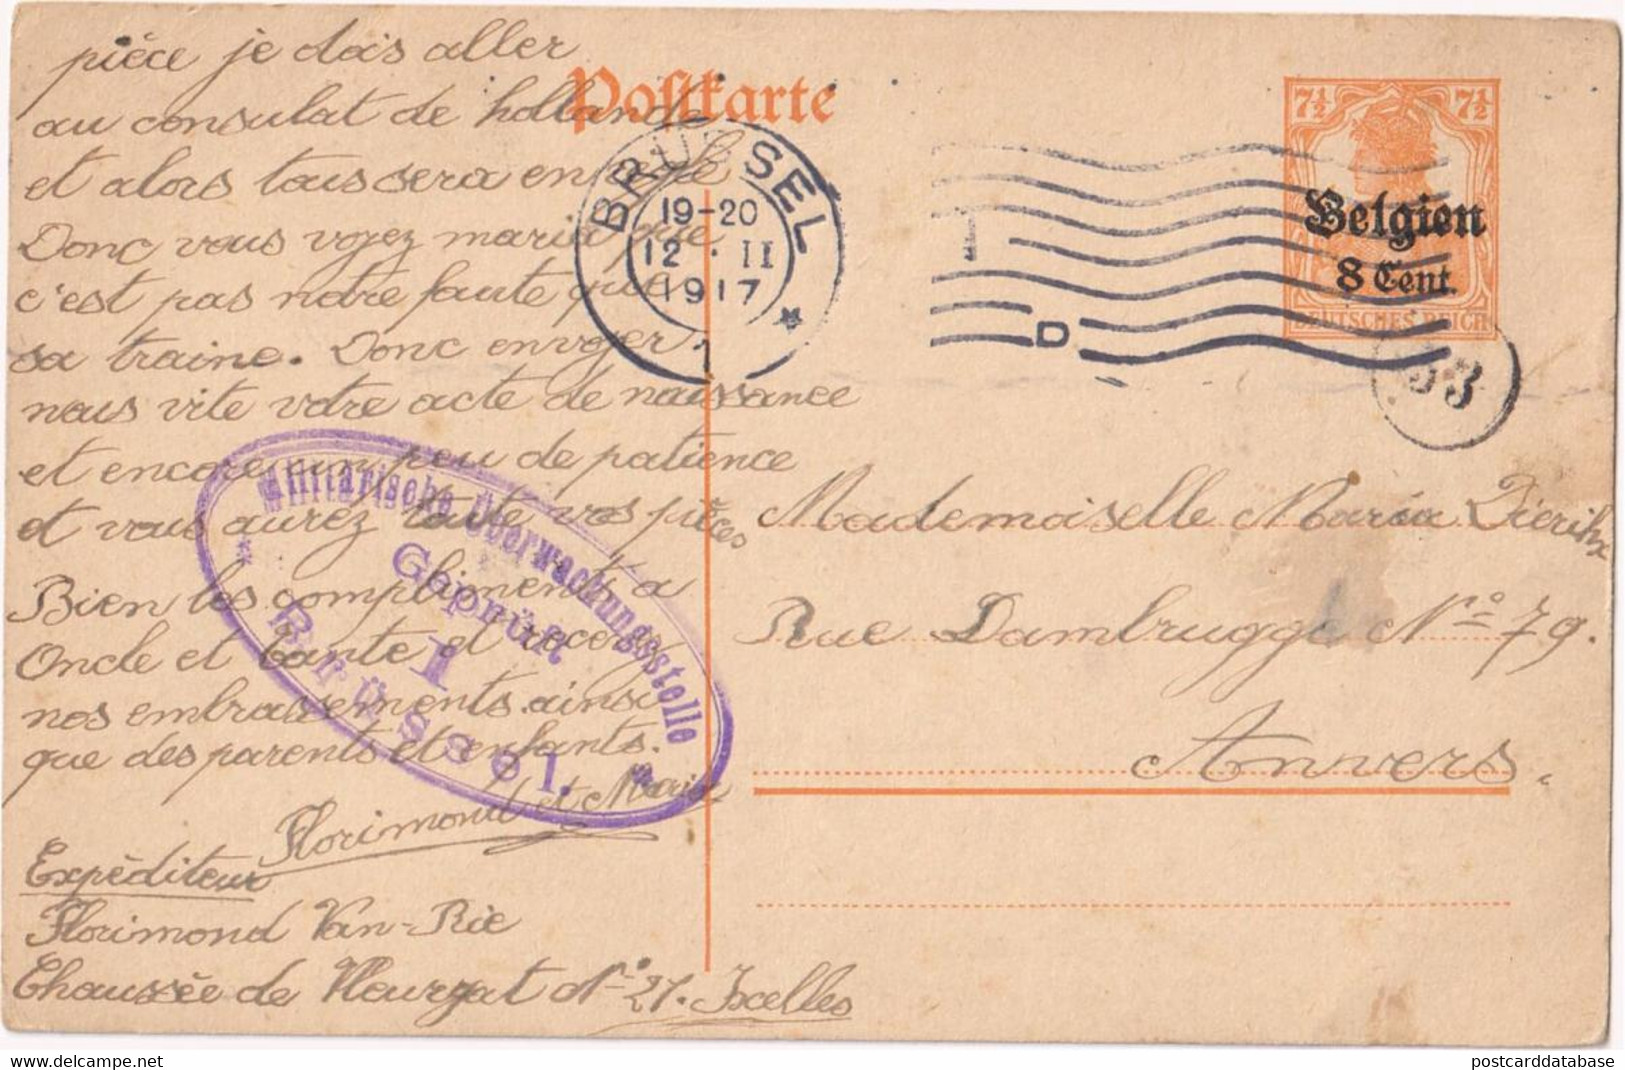 pièce je dois aller
au consulat de hollande
et alors tous sera en règle
Donc vous voyez maria que
c'est pas notre faute que
sa traine. Donc envoyer
nous vite votre acte de naissance
et encore un peu de patience
et vous aurez toute vos pièces
Bien les compliments a
Oncle et tante et recevez
nos embrassements ainsi
que des parents et enfants.
Florimond et Maria
Expéditeur
Florimond Van-Rie
Chaussée de Vleurgat No 27. Ixelles
Postkarte
BRÜSSEL
19-20
12 . II
1917
1
D
7½ 7½
Belgien
8 Cent.
DEUTSCHES REICH
Mademoiselle Maria Dierikx
Rue Dambrugge No 79.
Anvers.
Militärische Überwachungsstelle
Geprüft
I
Brüssel.
delcampe.net
postcarddatabase